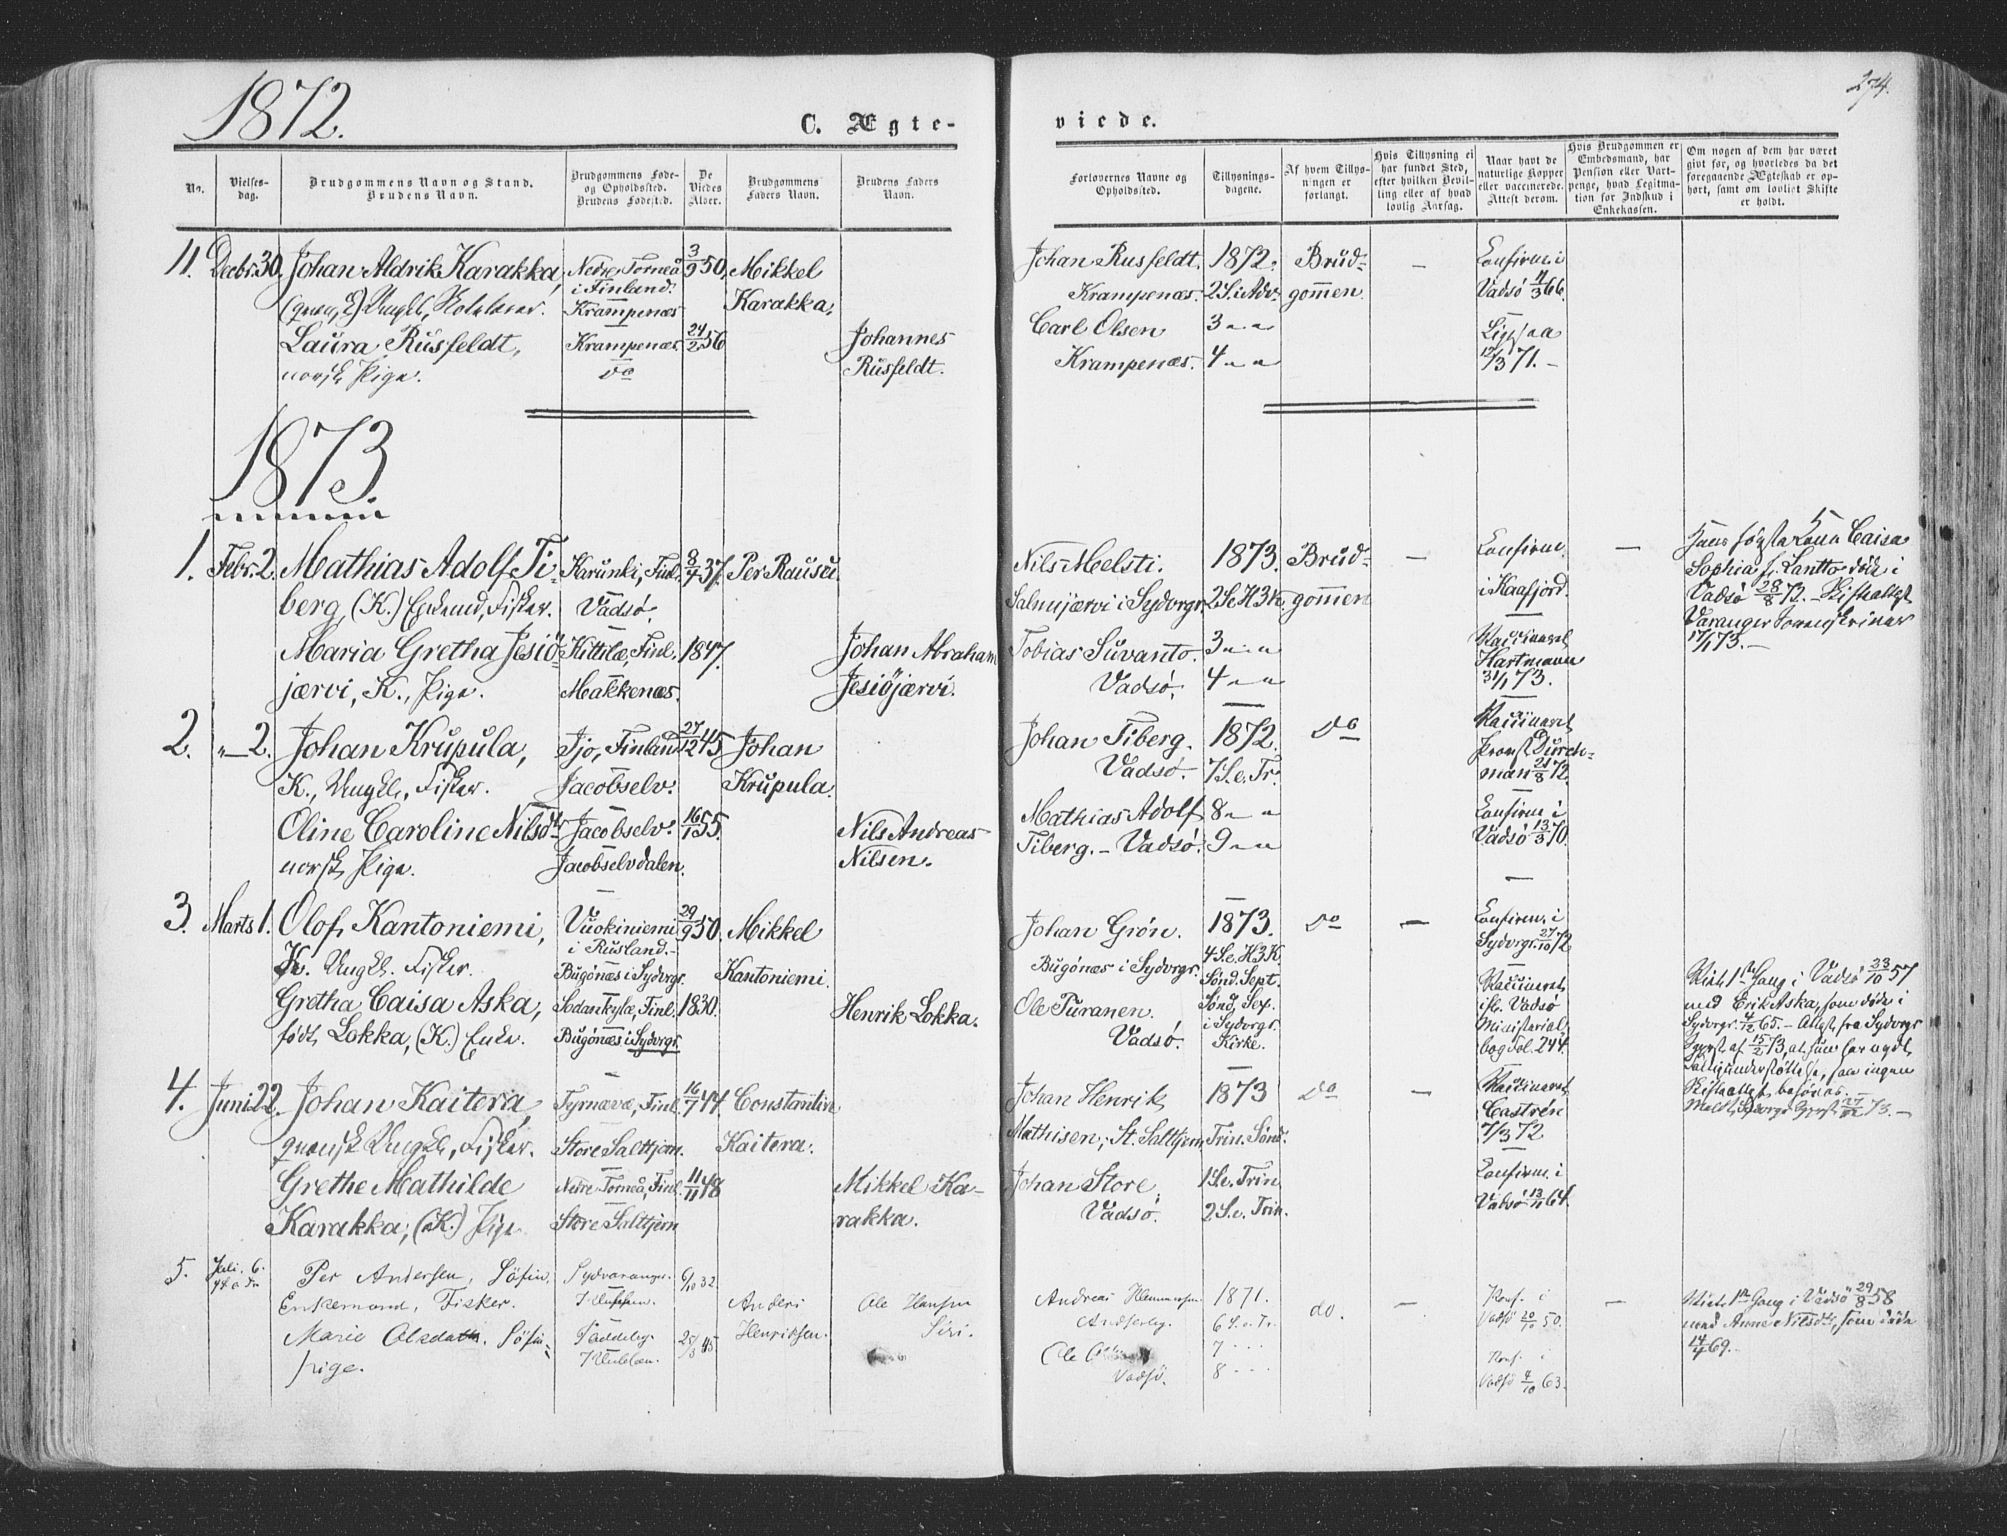 1872.
C. Ægte-
viede.
274.
No.
Vielses-
dag.
Brudgommens Navn og Stand.
Brudens Navn.
Brudgommens Føde-
og Opholdssted.
Brudens Fødested.
De
Viedes
Alder.
Brudgommens
Faders Navn.
Brudens Faders
Navn.
Forlovernes Navne og
Opholdssted.
Tillysnings-
dagene.
Af hvem Tillys-
ningen er
forlangt.
Hvis Tillysning ei
har fundet Sted,
efter hvilken Bevil-
ling eller af hvad
lovlig Aarsag.
Naar havt de
naturlige Kopper
eller vaccinerede.
Attest derom.
Hvis Brudgommen er
Embedsmand, har
Pension eller Vart-
penge, hvad Legitima-
tion for Indskud i
Enkekassen.
Om nogen af dem har været
gift før, og hvorledes da det
foregaaende Ægteskab er op-
hørt, samt om lovligt Skifte
er holdt.
11. Decbr. 30. Johan Aldrik Karakka,
(qvæn, E) Ungkl,
Laura Rusfeldt,
norsk Pige.
Nedre Torneå
i Finland.
Krampenæs
Krampenæs.
do
3/9 50.
24/2 56
Mikkel
Karakka.
Johannes
Rusfeldt.
Johan Rusfeldt.
Krampenæs.
Carl Olsen
Krampenæs.
1872.
2 S. i Adv.
3 - "
4 - "
Brud-
gommen.
—
Confirm. i
Vadsø 11/3 66.
Ligesaa
12/3 71. -
1873.
1. Febr. 2. Mathias Adolf Ti-
berg, (K.) Enkemd, Fisker.
Maria Gretha Jesiö-
järvi, K., Pige.
Karunki, Finl.
Vadsø.
Kittilæ, Finl.
Makkenæs.
8/7 37.
1847.
Per Rausu.
Johan Abraham
Jesiöjærvi.
Nils Melsti.
Salmijærvi i Sydvrgr.
Tobias Suvanto.
Vadsø.
1873.
2 S. e. H3K.
3 - "
4 - "
Brud-
gommen
—
Confirm.
i Kaafjord.
Vaccineret
Hartmann
31/1 73.
—
Hans første Kone Caisa
Sophia f. Lantto døde i
Vadsø 28/8 72. - Skifteattest
Varanger Sorenskriver
17/1 73. -
2. " — 2. Johan Krupula,
K., Ungkl., Fisker.
Oline Caroline Nilsdt
norsk Pige.
Ijo, Finland
Jacobselv.
Jacobselv.
Jacobselvdalen.
27/12 45
16/1 55.
Johan
Krupula.
Nils Andreas
Nilsen.
Johan Tiberg.
Vadsø.
Mathias Adolf
Tiberg. - Vadsø.
1872.
7 S. e. Tr.
8 - "
9 - "
Do
Vaccineret
Provst Durch-
man 21/8 72.
Confirm. i
Vadsø 13/3 70.
3. Marts 1. Olof Kantoniemi,
K. Ungkl. Fisker.
Gretha Caisa Aska,
født Lokka, (K.) Enke.
Vuokiniemi
i Rusland. -
Bugønæs i Sydvrgr.
Sodankylæ, Finl.
Bugønæs i Sydvrgr.
29/9 50.
1830.
Mikkel
Kantoniemi.
Henrik Lokka.
Johan Grön.
Bugønæs i Sydvrgr.
Ole Puranen.
Vadsø.
1873.
4 S. e. H3K.
Sønd. Sept.
Sønd. Sex.
i Sydvrgr.
Kirke.
Do
—
Confirm. i
Sydvrgr. 27/10 72
Vaccineret
ifl. Vadsø
Ministerial-
bog Fol. 244.
Viet 1ste Gang i Vadsø 23/10 57
med Erik Aska, som døde i
Sydvrgr. 4/12 65. - Attest fra Sydvrgr
Prgst af 15/2 73, at hun har nydt
Fattigunderstøttelse, saa ingen
Skifteattest behøves.
4. Juni 22. Johan Kaitera,
qvænsk Ungkl, Fisker.
Grethe Mathilde
Karakka, (K.) Pige
Tyrnævæ, Finl.
Store Salttjern.
Nedre Torneå, Finl.
Store Salttjern
16/7 44
11/11 48
Constantin
Kaitera.
Mikkel Ka-
rakka.
Johan Henrik
Mathisen, St. Salttjern
Johan Store,
Vadsø.
1873
Trin. Sønd.
1 S. e. Trin
2 S. e. Trin.
Do
—
Vaccineret
Castrén
7/3 72
Confirm. i
Vadsø 13/11 64.
5. Juli. 6. Per Andersen, Søfin,
Enkemand, Fisker.
Marie Olsdatt. Søfin-
pige.
Sydvaranger.
Paddeby.
6/10 32
25/3 45
Anders
Henriksen.
Ole Hansen
Siri.
Andreas
Vadsø.
1871.
6 S. e. Tr.
7 - - -
8 - - -
do.
—
Konf. i
Vadsø 20/10 50.
Konf. i
Vadsø 4/10 63.
—
Viet 1ste Gang i Vadsø 29/8 58
med Anne Nilsdt, som døde
14/4 69. -